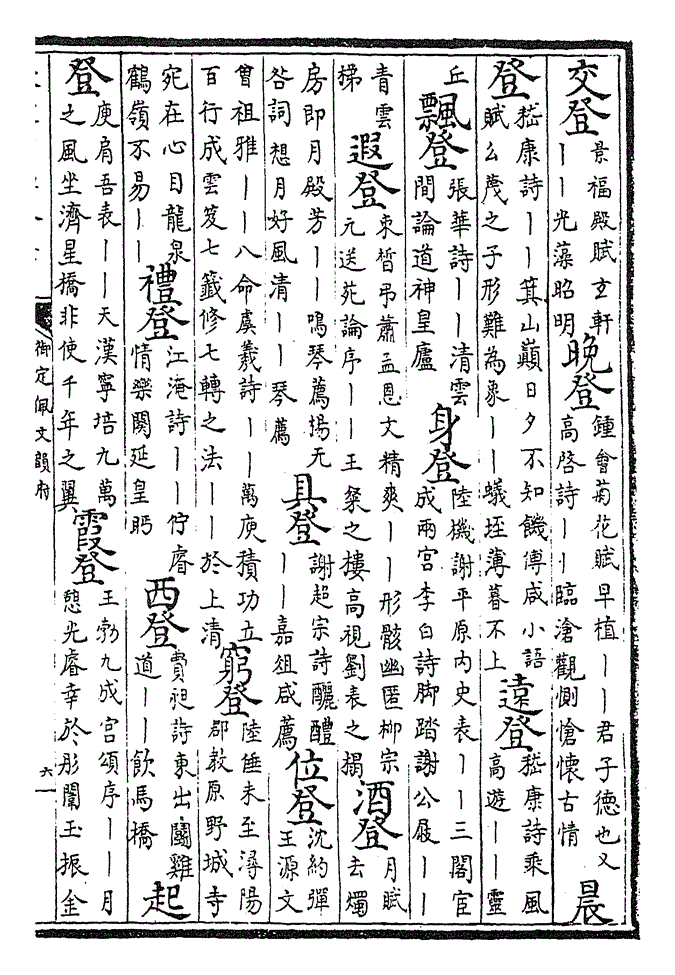 交登 景福殿賦玄軒丨丨光藻昭明 晚登 鍾會菊花賦早植丨丨君子德也又高啓詩丨丨臨滄觀惻愴懷古情 晨
登 嵇康詩丨丨箕山巔日夕不知饑傅咸小語賦么蔑之子形難為象丨丨蟻垤薄暮不上 遠登 嵇康詩乘風高遊丨丨靈
丘 飄登 張華詩丨丨清雲間論道神皇廬 身登 陸機謝平原内史表丨丨三閣宦成兩宮李白詩脚踏謝公屐丨丨
青雲梯 遐登 束皙弔蕭孟恩文精爽丨丨形骸幽匿柳宗元送苑論序丨丨王粲之樓高視劉表之榻 酒登 月賦去燭
房即月殿芳丨丨鳴琴薦揚无咎詞想月好風清丨丨琴薦 具登 謝超宗詩醽醴丨丨嘉俎咸薦 位登 沈約彈王源文
曾祖雅丨丨八命虞羲詩丨丨萬庾積功立百行成雲笈七籤修七轉之法丨丨於上清 窮登 陸倕未至潯陽郡教原野城寺
宛在心目龍泉鶴嶺不易丨丨 禮登 江淹詩丨丨佇睿情樂闋延皇眄 西登 賈昶詩東出鬭雞道丨丨飲馬橋 起
登 庾肩吾表丨丨天漢寧培九萬之風坐濟星橋非使千年之翼 霞登 王勃九成宮頌序丨丨月憩光睿幸於彤闈玉振金
御定佩文韻府
六一